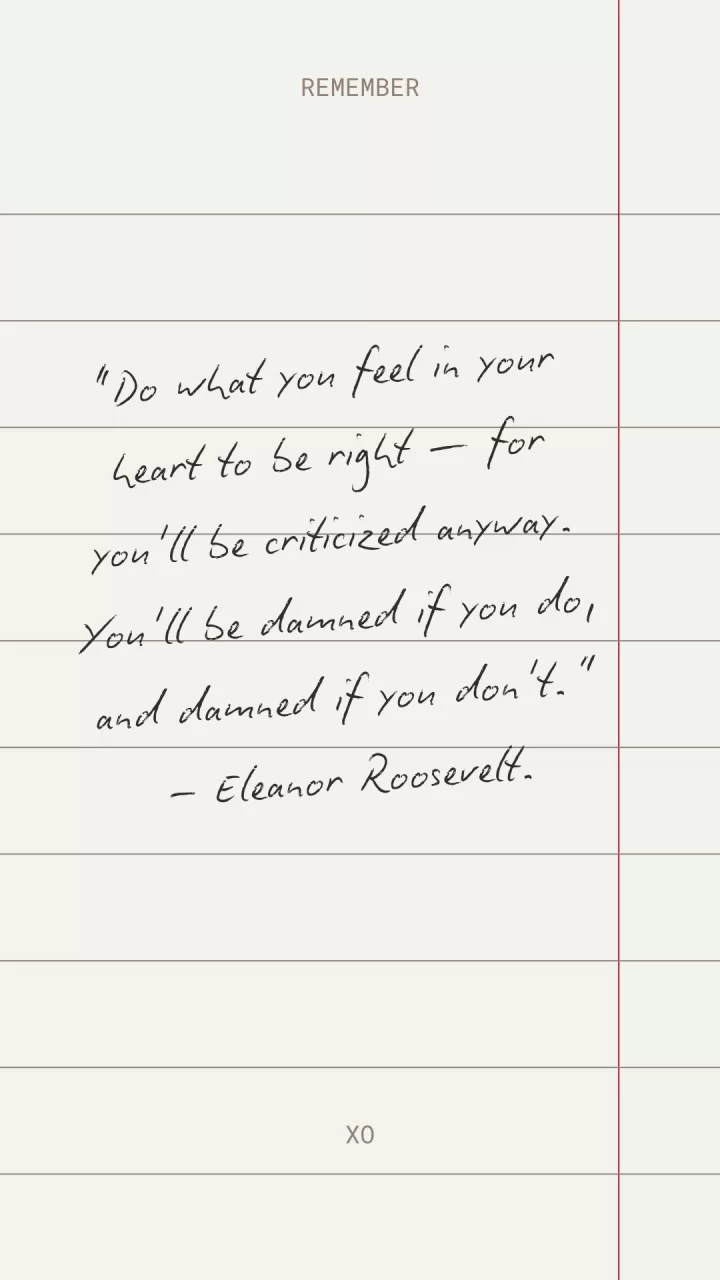 REMEMBER
"Do what you feel in your
heart to be right – for
you'll be criticized anyway.
You'll be damned if you do,
and damned if you don't."
– Eleanor Roosevelt.
XO